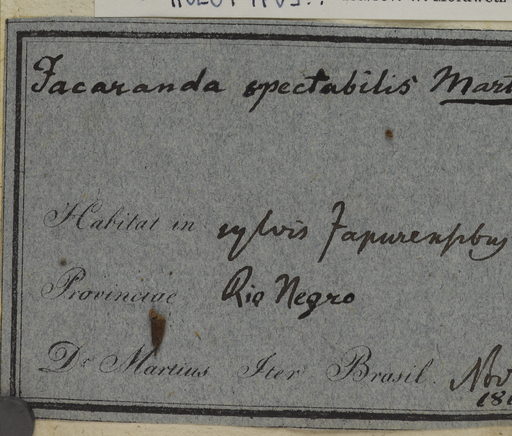 Jacaranda spectabilis Mart
Habitat in sylvis Japurensibus
Provinciae Rio Negro
Dr. Martius Iter Brasil. Nov
18